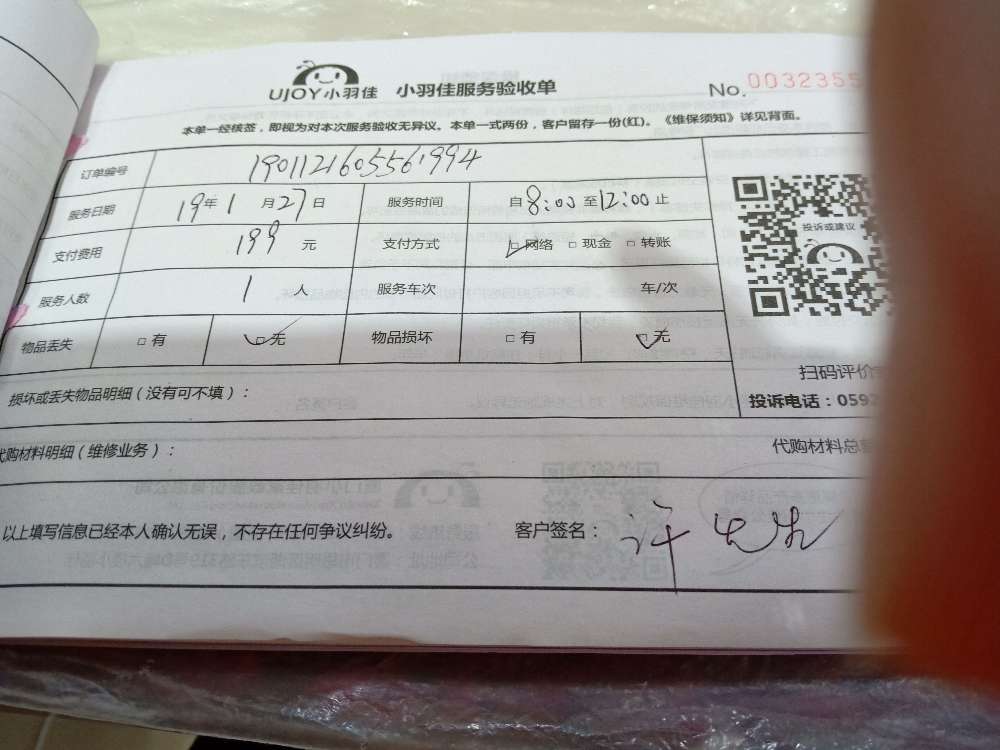 UJOY小羽佳 小羽佳服务验收单 No. 0032355
本单一经核签，即视为对本次服务验收无异议。本单一式两份，客户留存一份(红)。《维保须知》详见背面。
订单编号 1901121605561994
服务日期 19年1月27日 服务时间 自8:00至12:00止
投诉或建议
支付费用 199元 支付方式 □网络 □现金 □转账
服务人数 1人 服务车次 车/次
物品丢失 □有 □无 物品损坏 □有 □无
扫码评价
损坏或丢失物品明细（没有可不填）：
投诉电话：0592
代购材料明细（维修业务）： 代购材料总
以上填写信息已经本人确认无误，不存在任何争议纠纷。 客户签名：许先生